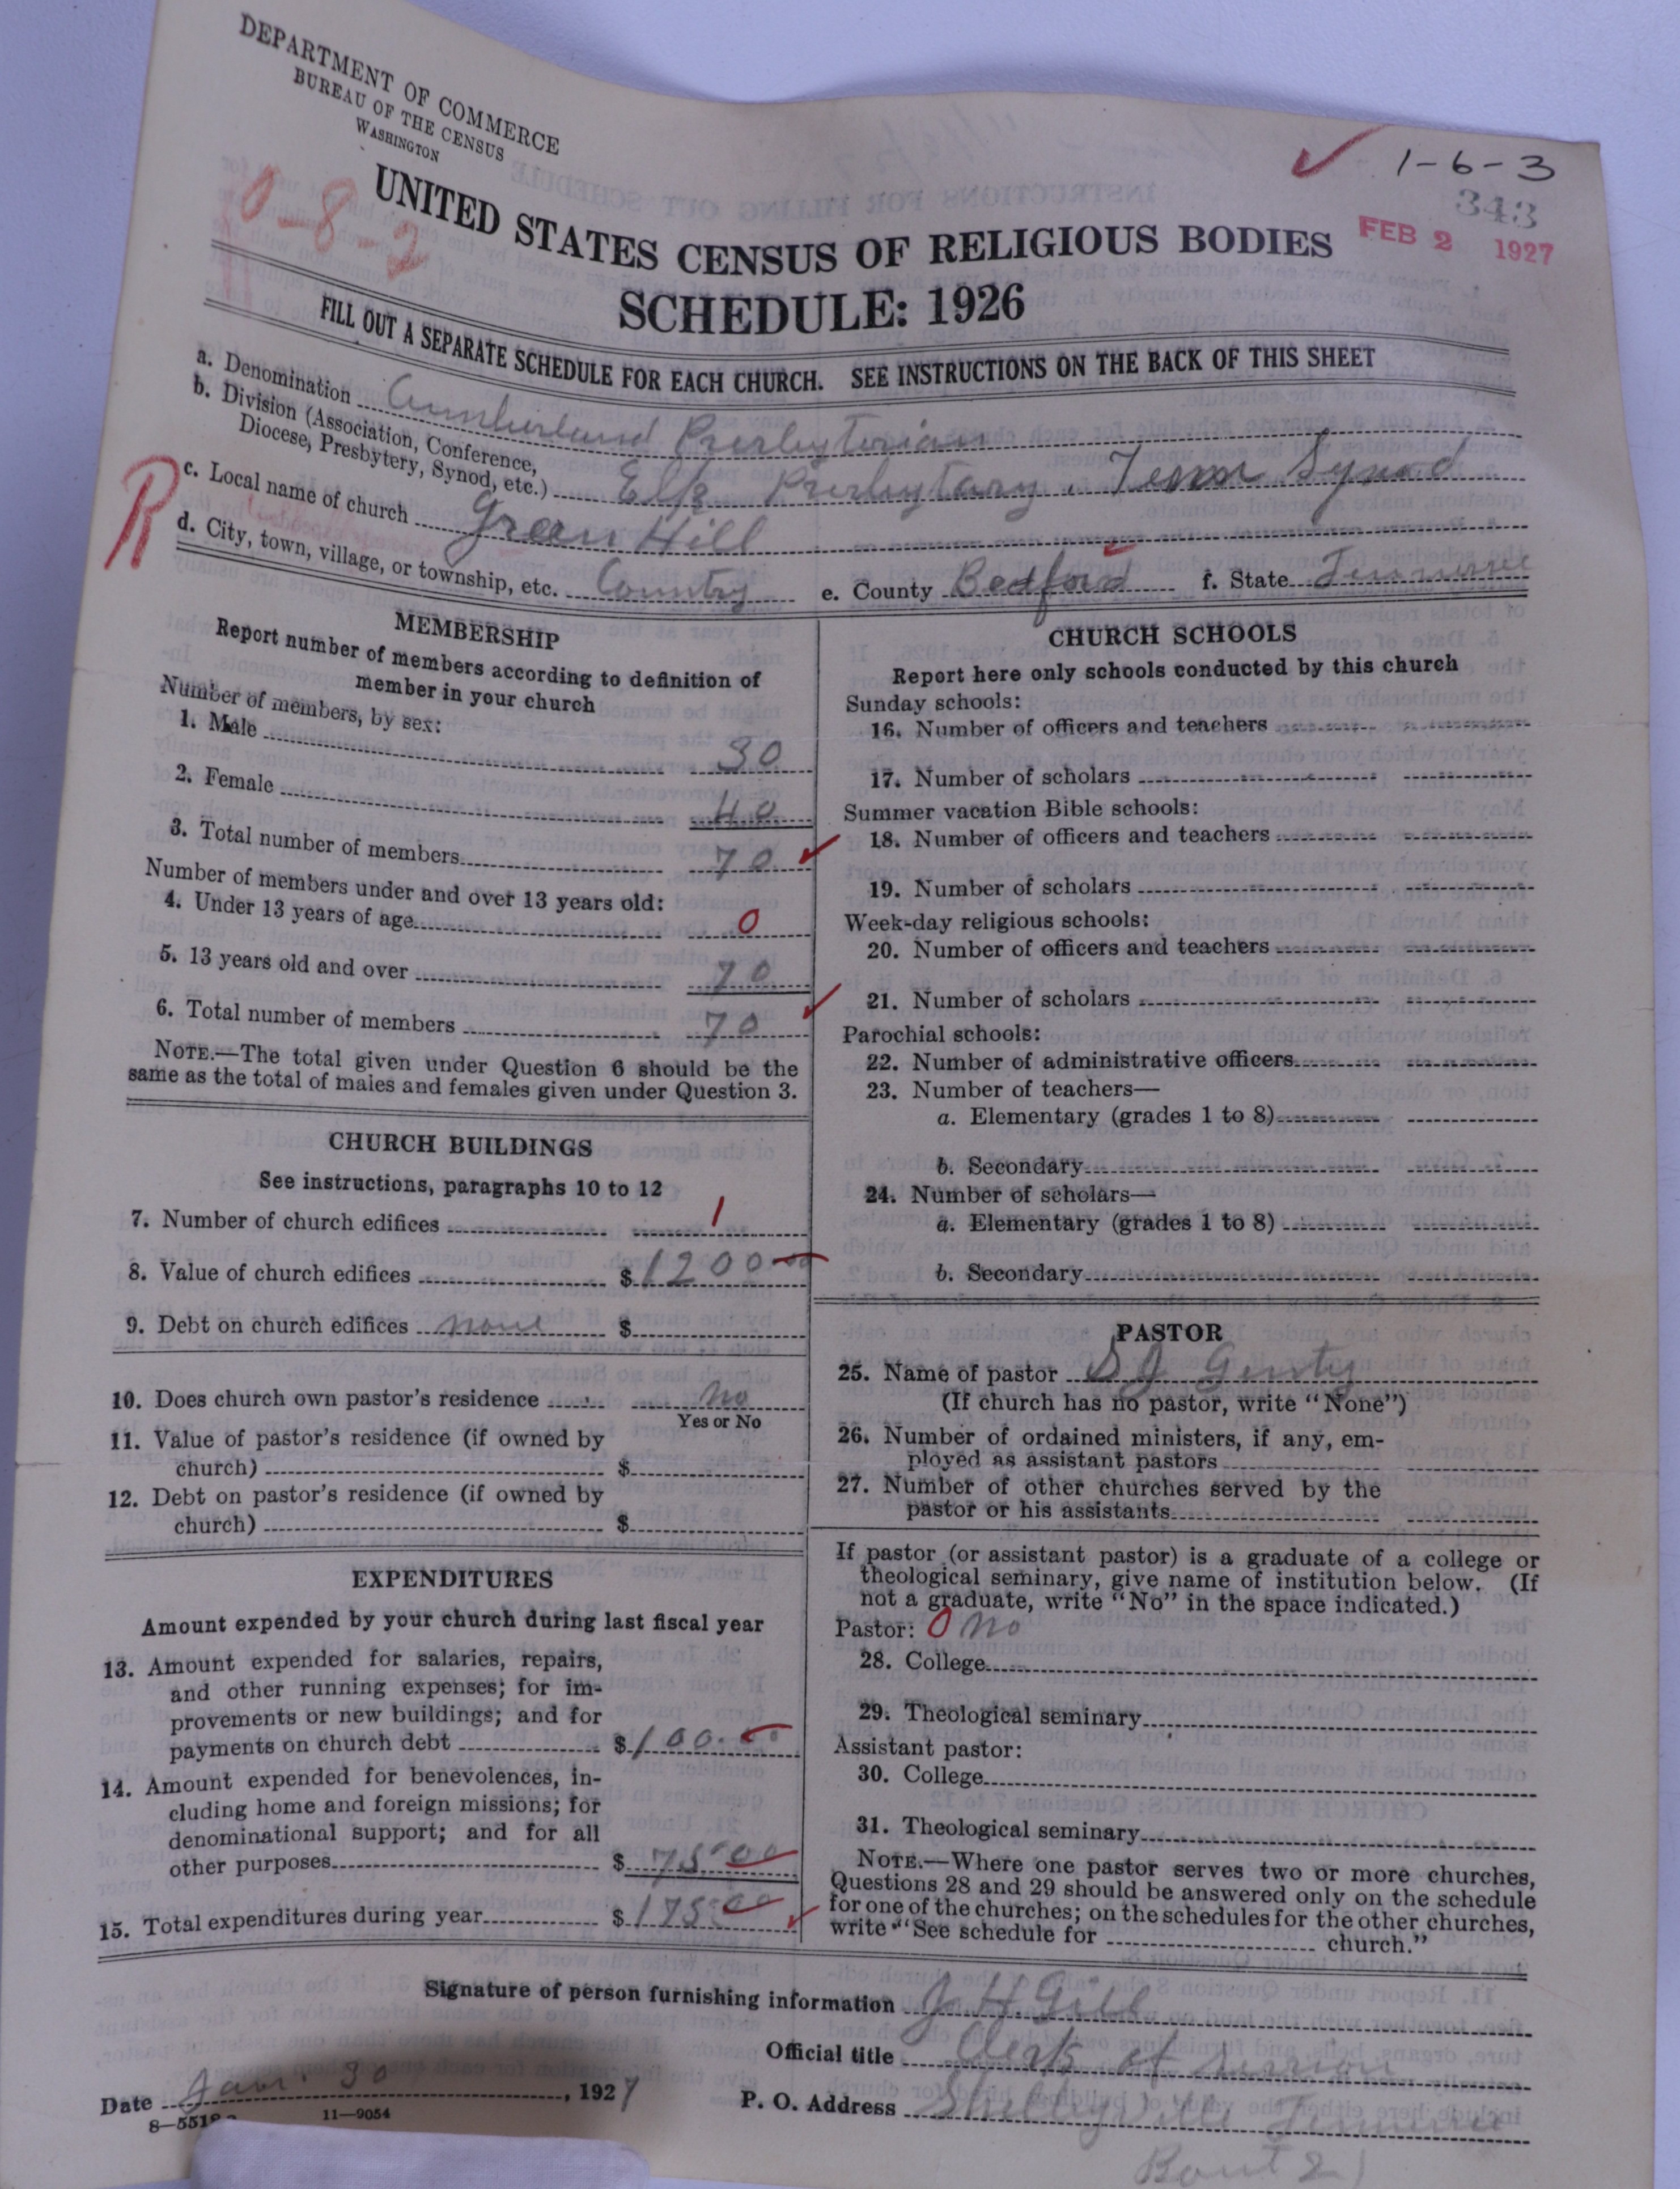 DEPARTMENT OF COMMERCE
BUREAU OF THE CENSUS
WASHINGTON
1-6-3
343
0-8-2
FEB 2 1927
UNITED STATES CENSUS OF RELIGIOUS BODIES
SCHEDULE: 1926
FILL OUT A SEPARATE SCHEDULE FOR EACH CHURCH. SEE INSTRUCTIONS ON THE BACK OF THIS SHEET
a. Denomination Cumberland Presbyterian
b. Division (Association, Conference,
Diocese, Presbytery, Synod, etc.) Elk Presbytary. Tenn Synod
R
c. Local name of church Green Hill
d. City, town, village, or township, etc. Country e. County Bedford f. State Tennessee
MEMBERSHIP
Report number of members according to definition of
member in your church
Number of members, by sex:
1. Male 30
2. Female 40
3. Total number of members 70
Number of members under and over 13 years old:
4. Under 13 years of age 0
5. 13 years old and over 70
6. Total number of members 70
NOTE.—The total given under Question 6 should be the
same as the total of males and females given under Question 3.
CHURCH BUILDINGS
See instructions, paragraphs 10 to 12
7. Number of church edifices 1
8. Value of church edifices $1200 00
9. Debt on church edifices none $
10. Does church own pastor's residence No
Yes or No
11. Value of pastor's residence (if owned by
church) $
12. Debt on pastor's residence (if owned by
church) $
EXPENDITURES
Amount expended by your church during last fiscal year
13. Amount expended for salaries, repairs,
and other running expenses; for im-
provements or new buildings; and for
payments on church debt $100.00
14. Amount expended for benevolences, in-
cluding home and foreign missions; for
denominational support; and for all
other purposes $75 00
15. Total expenditures during year $175 00
CHURCH SCHOOLS
Report here only schools conducted by this church
Sunday schools:
16. Number of officers and teachers
17. Number of scholars
Summer vacation Bible schools:
18. Number of officers and teachers
19. Number of scholars
Week-day religious schools:
20. Number of officers and teachers
21. Number of scholars
Parochial schools:
22. Number of administrative officers
23. Number of teachers—
a. Elementary (grades 1 to 8)
b. Secondary
24. Number of scholars—
a. Elementary (grades 1 to 8)
b. Secondary
PASTOR
25. Name of pastor S J Genty
(If church has no pastor, write "None")
26. Number of ordained ministers, if any, em-
ployed as assistant pastors
27. Number of other churches served by the
pastor or his assistants
If pastor (or assistant pastor) is a graduate of a college or
theological seminary, give name of institution below. (If
not a graduate, write "No" in the space indicated.)
Pastor: 0 No
28. College
29. Theological seminary
Assistant pastor:
30. College
31. Theological seminary
NOTE.—Where one pastor serves two or more churches,
Questions 28 and 29 should be answered only on the schedule
for one of the churches; on the schedules for the other churches,
write "See schedule for church."
Signature of person furnishing information J. H. Gill
Official title Clerk of session
Date Jan. 30, 1927 P. O. Address Shelbyville Tennessee
8-551 11-9054
Rout 2